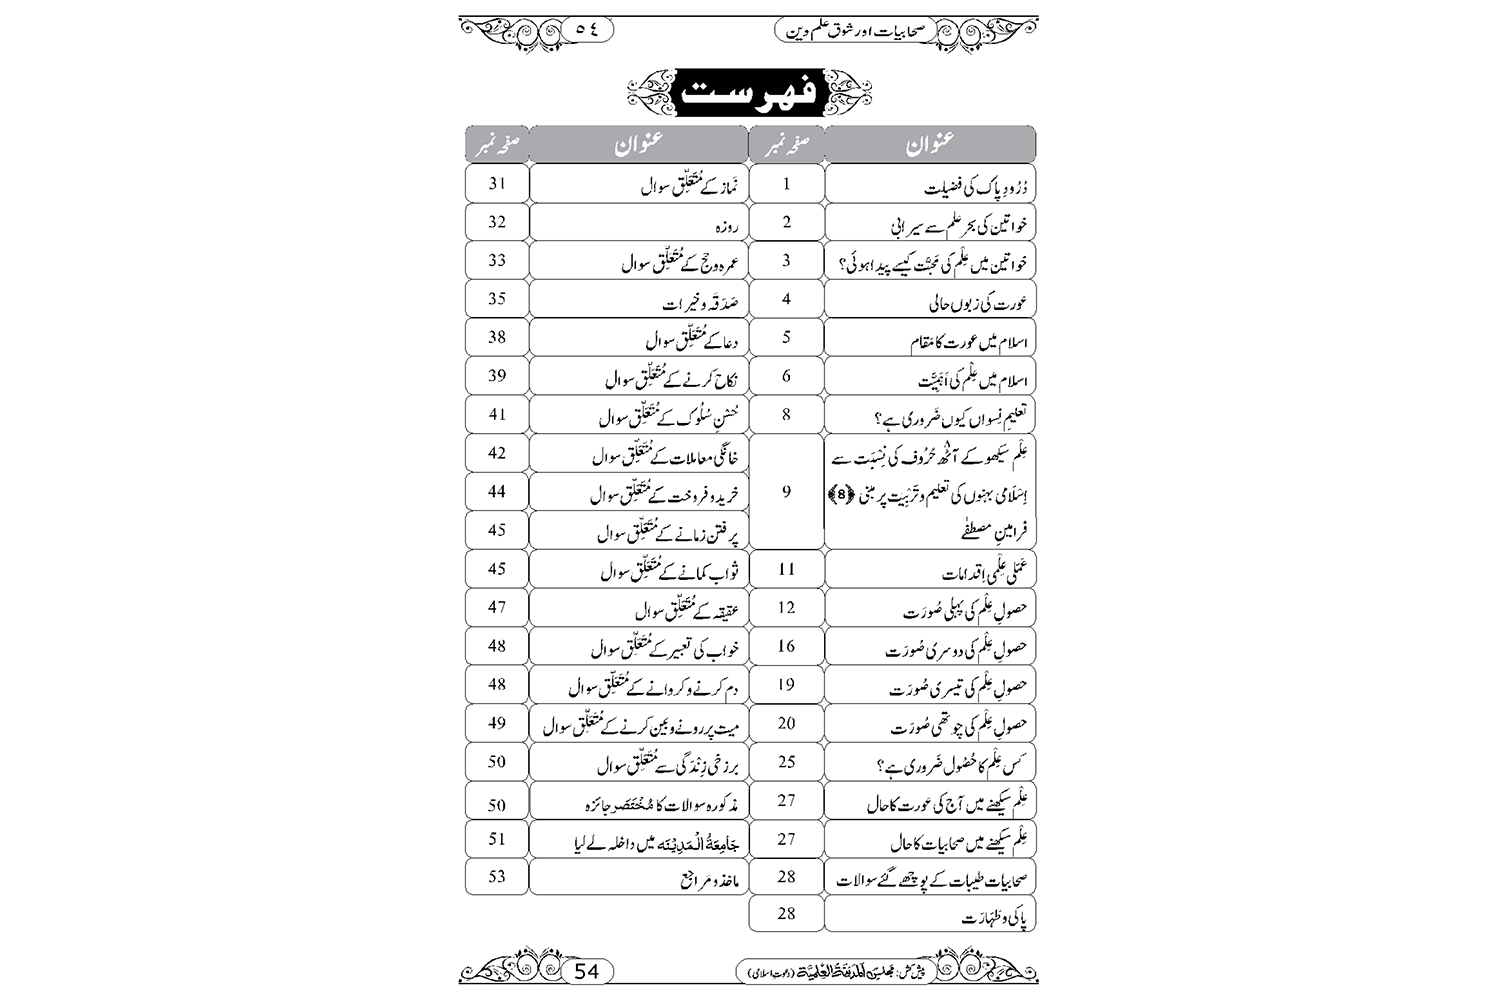 صحابیات اور شوقِ علمِ دین
٥٤
فہرست
عنوان صفحہ نمبر عنوان صفحہ نمبر
دُرُودِ پاک کی فضیلت 1 نَماز کے مُتَعَلِّق سوال 31
خواتین کی بحرِ علم سے سیرابی 2 روزہ 32
خواتین میں عِلْم کی مَحَبَّت کیسے پیدا ہوئی؟ 3 عمرہ و حج کے مُتَعَلِّق سوال 33
عورت کی زبوں حالی 4 صَدَقَہ و خیرات 35
اسلام میں عورت کا مَقام 5 دعا کے مُتَعَلِّق سوال 38
اسلام میں عِلْم کی اَہَمِیَّت 6 نکاح کرنے کے مُتَعَلِّق سوال 39
تعلیمِ نِسواں کیوں ضَروری ہے؟ 8 حُسْنِ سُلُوک کے مُتَعَلِّق سوال 41
عِلْم سیکھو کے آٹھ حُرُوف کی نِسْبَت سے 9 خانگی معاملات کے مُتَعَلِّق سوال 42
اِسْلَامی بہنوں کی تعلیم و تَرْبِیَت پر مبنی ﴿8﴾ خرید و فروخت کے مُتَعَلِّق سوال 44
فرامینِ مصطفٰے پر فتن زمانے کے مُتَعَلِّق سوال 45
عَمَلی عِلْمی اِقدامات 11 ثواب کمانے کے مُتَعَلِّق سوال 45
حصولِ عِلْم کی پہلی صُورَت 12 عقیقہ کے مُتَعَلِّق سوال 47
حصولِ عِلْم کی دوسری صُورَت 16 خواب کی تعبیر کے مُتَعَلِّق سوال 48
حصولِ عِلْم کی تیسری صُورَت 19 دم کرنے و کروانے کے مُتَعَلِّق سوال 48
حصولِ عِلْم کی چوتھی صُورَت 20 میت پر رونے و بین کرنے کے مُتَعَلِّق سوال 49
کس عِلْم کا حُصُول ضَروری ہے؟ 25 برزخی زِنْدَگی سے مُتَعَلِّق سوال 50
عِلْم سیکھنے میں آج کی عورت کا حال 27 مذکورہ سوالات کا مُخْتَصَر جائزہ 50
عِلْم سیکھنے میں صحابیات کا حال 27 جَامِعَۃُ الْمَدِیْنَہ میں داخلہ لے لیا 51
صحابیات طیبات کے پوچھے گئے سوالات 28 ماخذ و مَراجِع 53
پاکی و طَہَارَت 28
پیش کش: مجلس المدینۃ العلمیۃ (دعوتِ اسلامی)
54